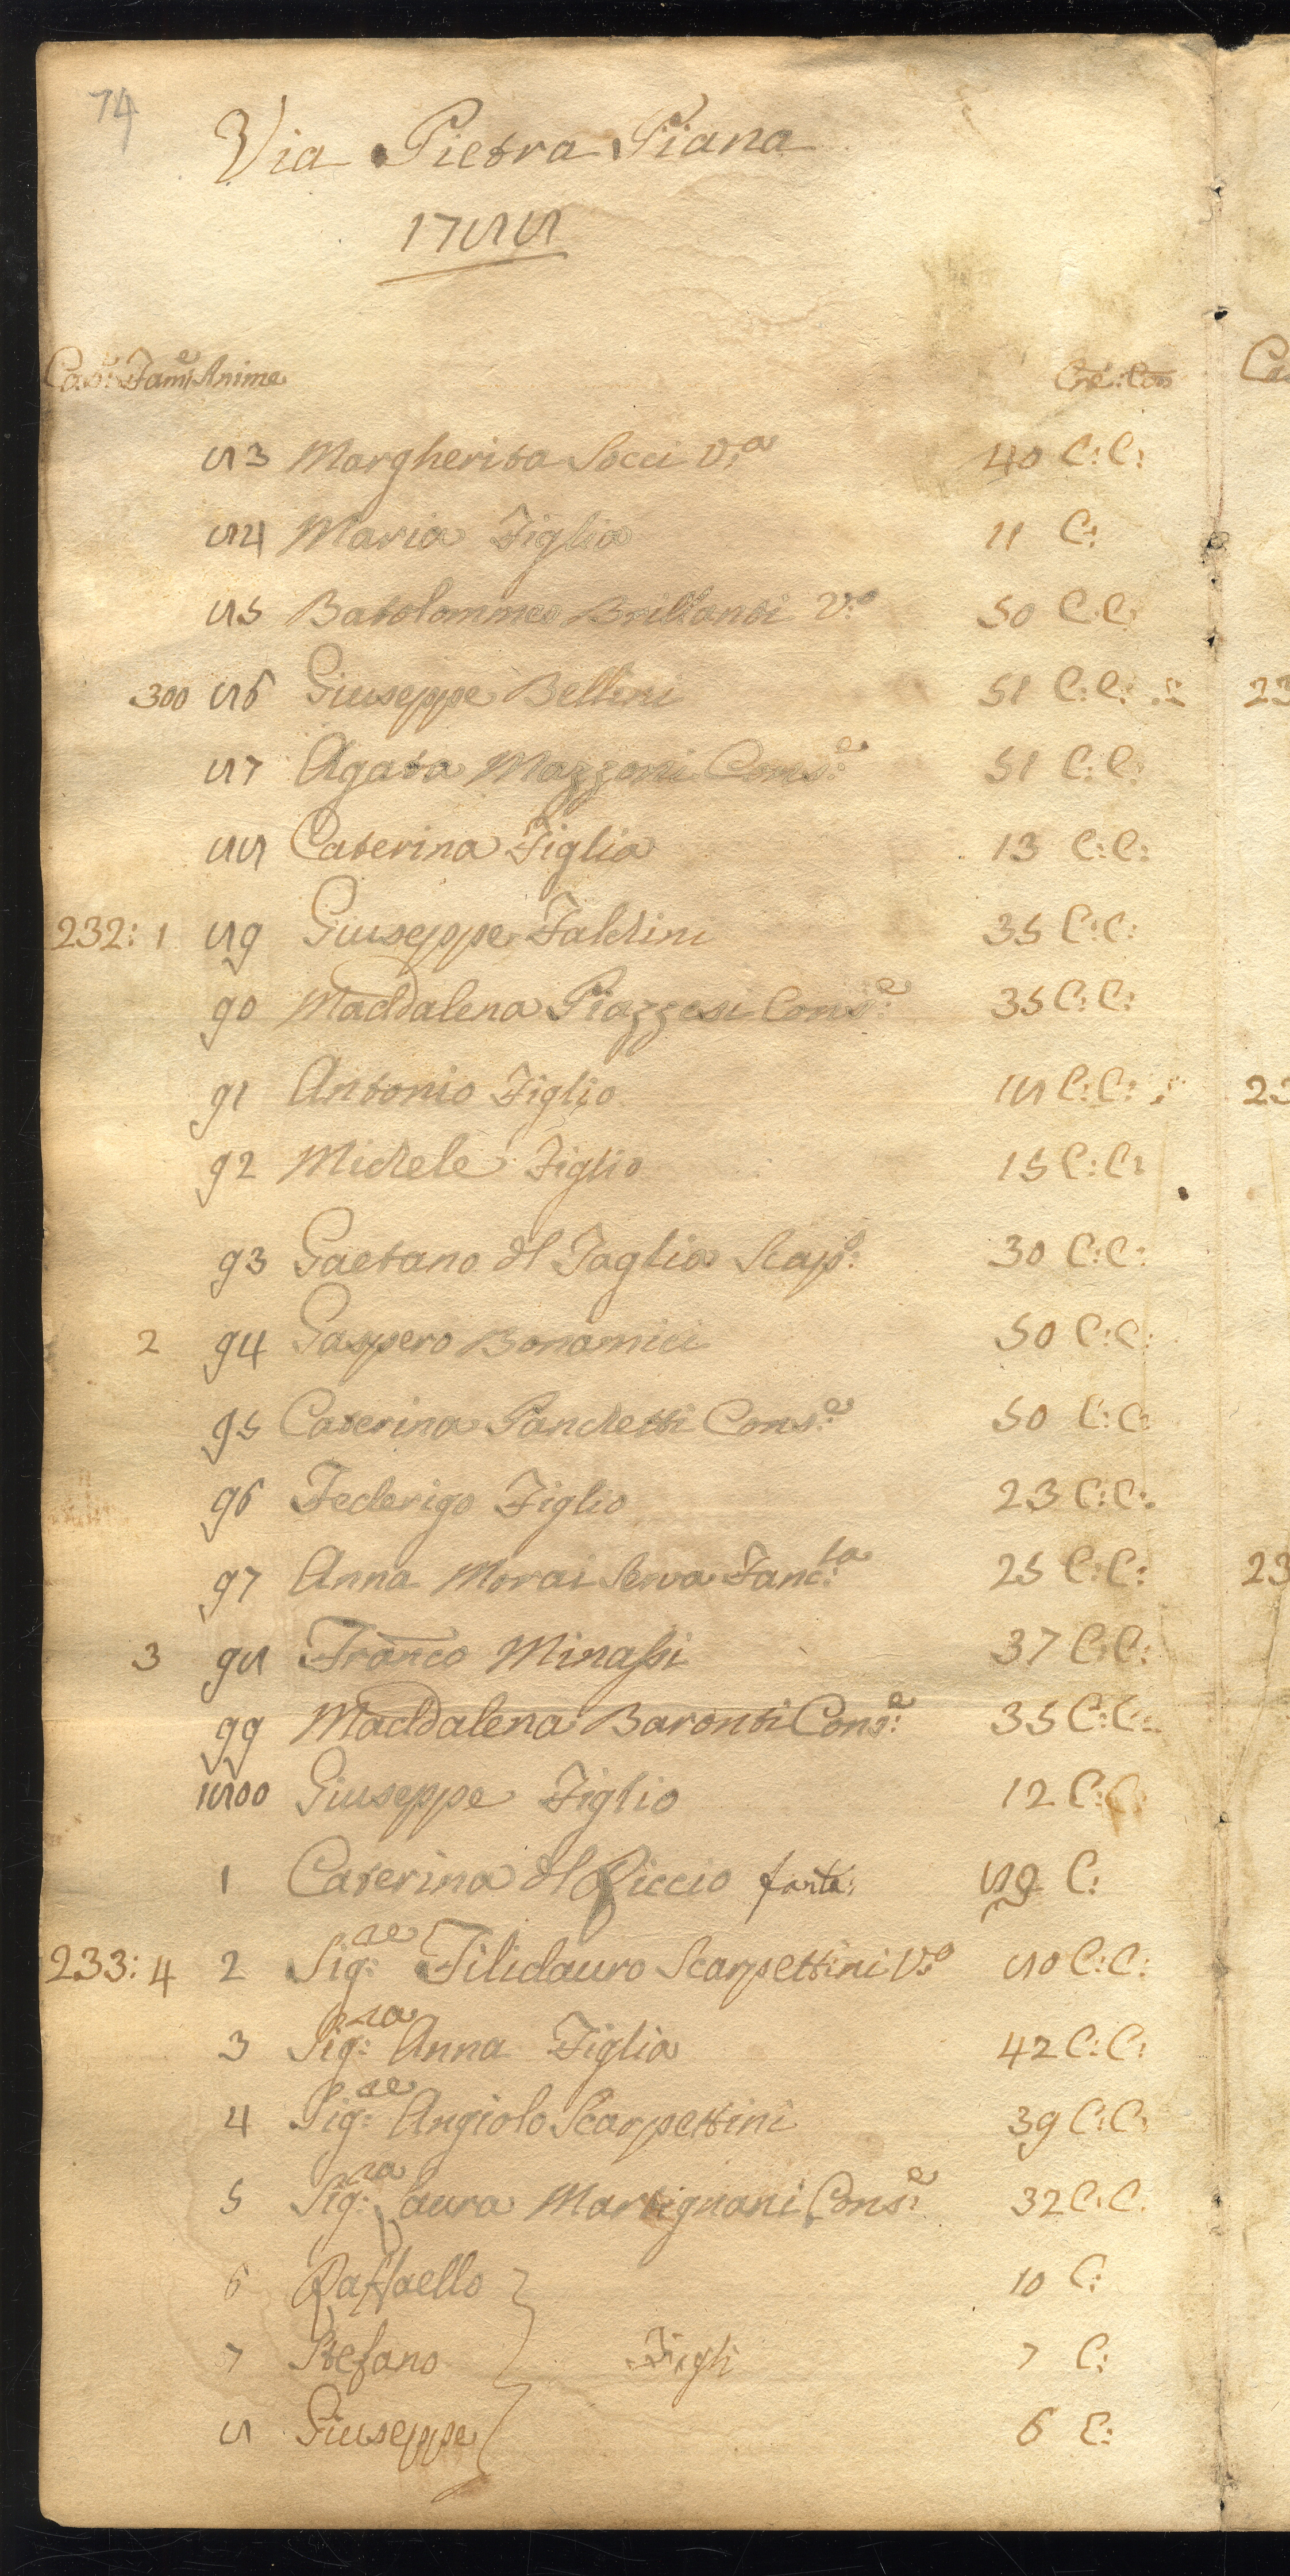 74
Via Pietra Piana
1788
Case Fam:e Anime Cre: Con
83 Margherita Socci V:a 40 C: C:
84 Maria Figlia 11 C:
85 Batolommeo Brillanti V:o 50 C: C:
300 86 Giuseppe Bellini 51 C: C:
87 Agata Mazzoni Cons:e 51 C: C:
88 Caterina Figlia 13 C: C:
232: 1 89 Giuseppe Faldini 35 C: C:
90 Maddalena Piazzesi Cons:e 35 C: C:
91 Antonio Figlio 18 C: C:
92 Michele Figlio 15 C: C:
93 Gaetano dl Taglia Scap:o 30 C: C:
2 94 Gaspero Bonamici 50 C: C:
95 Caterina Panchetti Cons:e 50 C: C:
96 Federigo Figlio 23 C: C:
97 Anna Morai Serva Fanc:la 25 C: C:
3 98 Franco Minassi 37 C: C:
99 Maddalena Baronti Cons:e 35 C: C:
1800 Giuseppe Figlio 12 C: C:
1 Caterina dl Riccio C:
233: 4 2 Sig:re Filidauro Scarpettini V:o 80 C: C:
3 Sig:ra Anna Figlia 42 C: C:
4 Sig:re Angiolo Scarpettini 39 C: C:
5 Sig:ra Laura Martignani Cons:e 32 C: C:
6 Raffaello 10 C:
7 Stefano Figli 7 C:
8 Giuseppe 6 C: